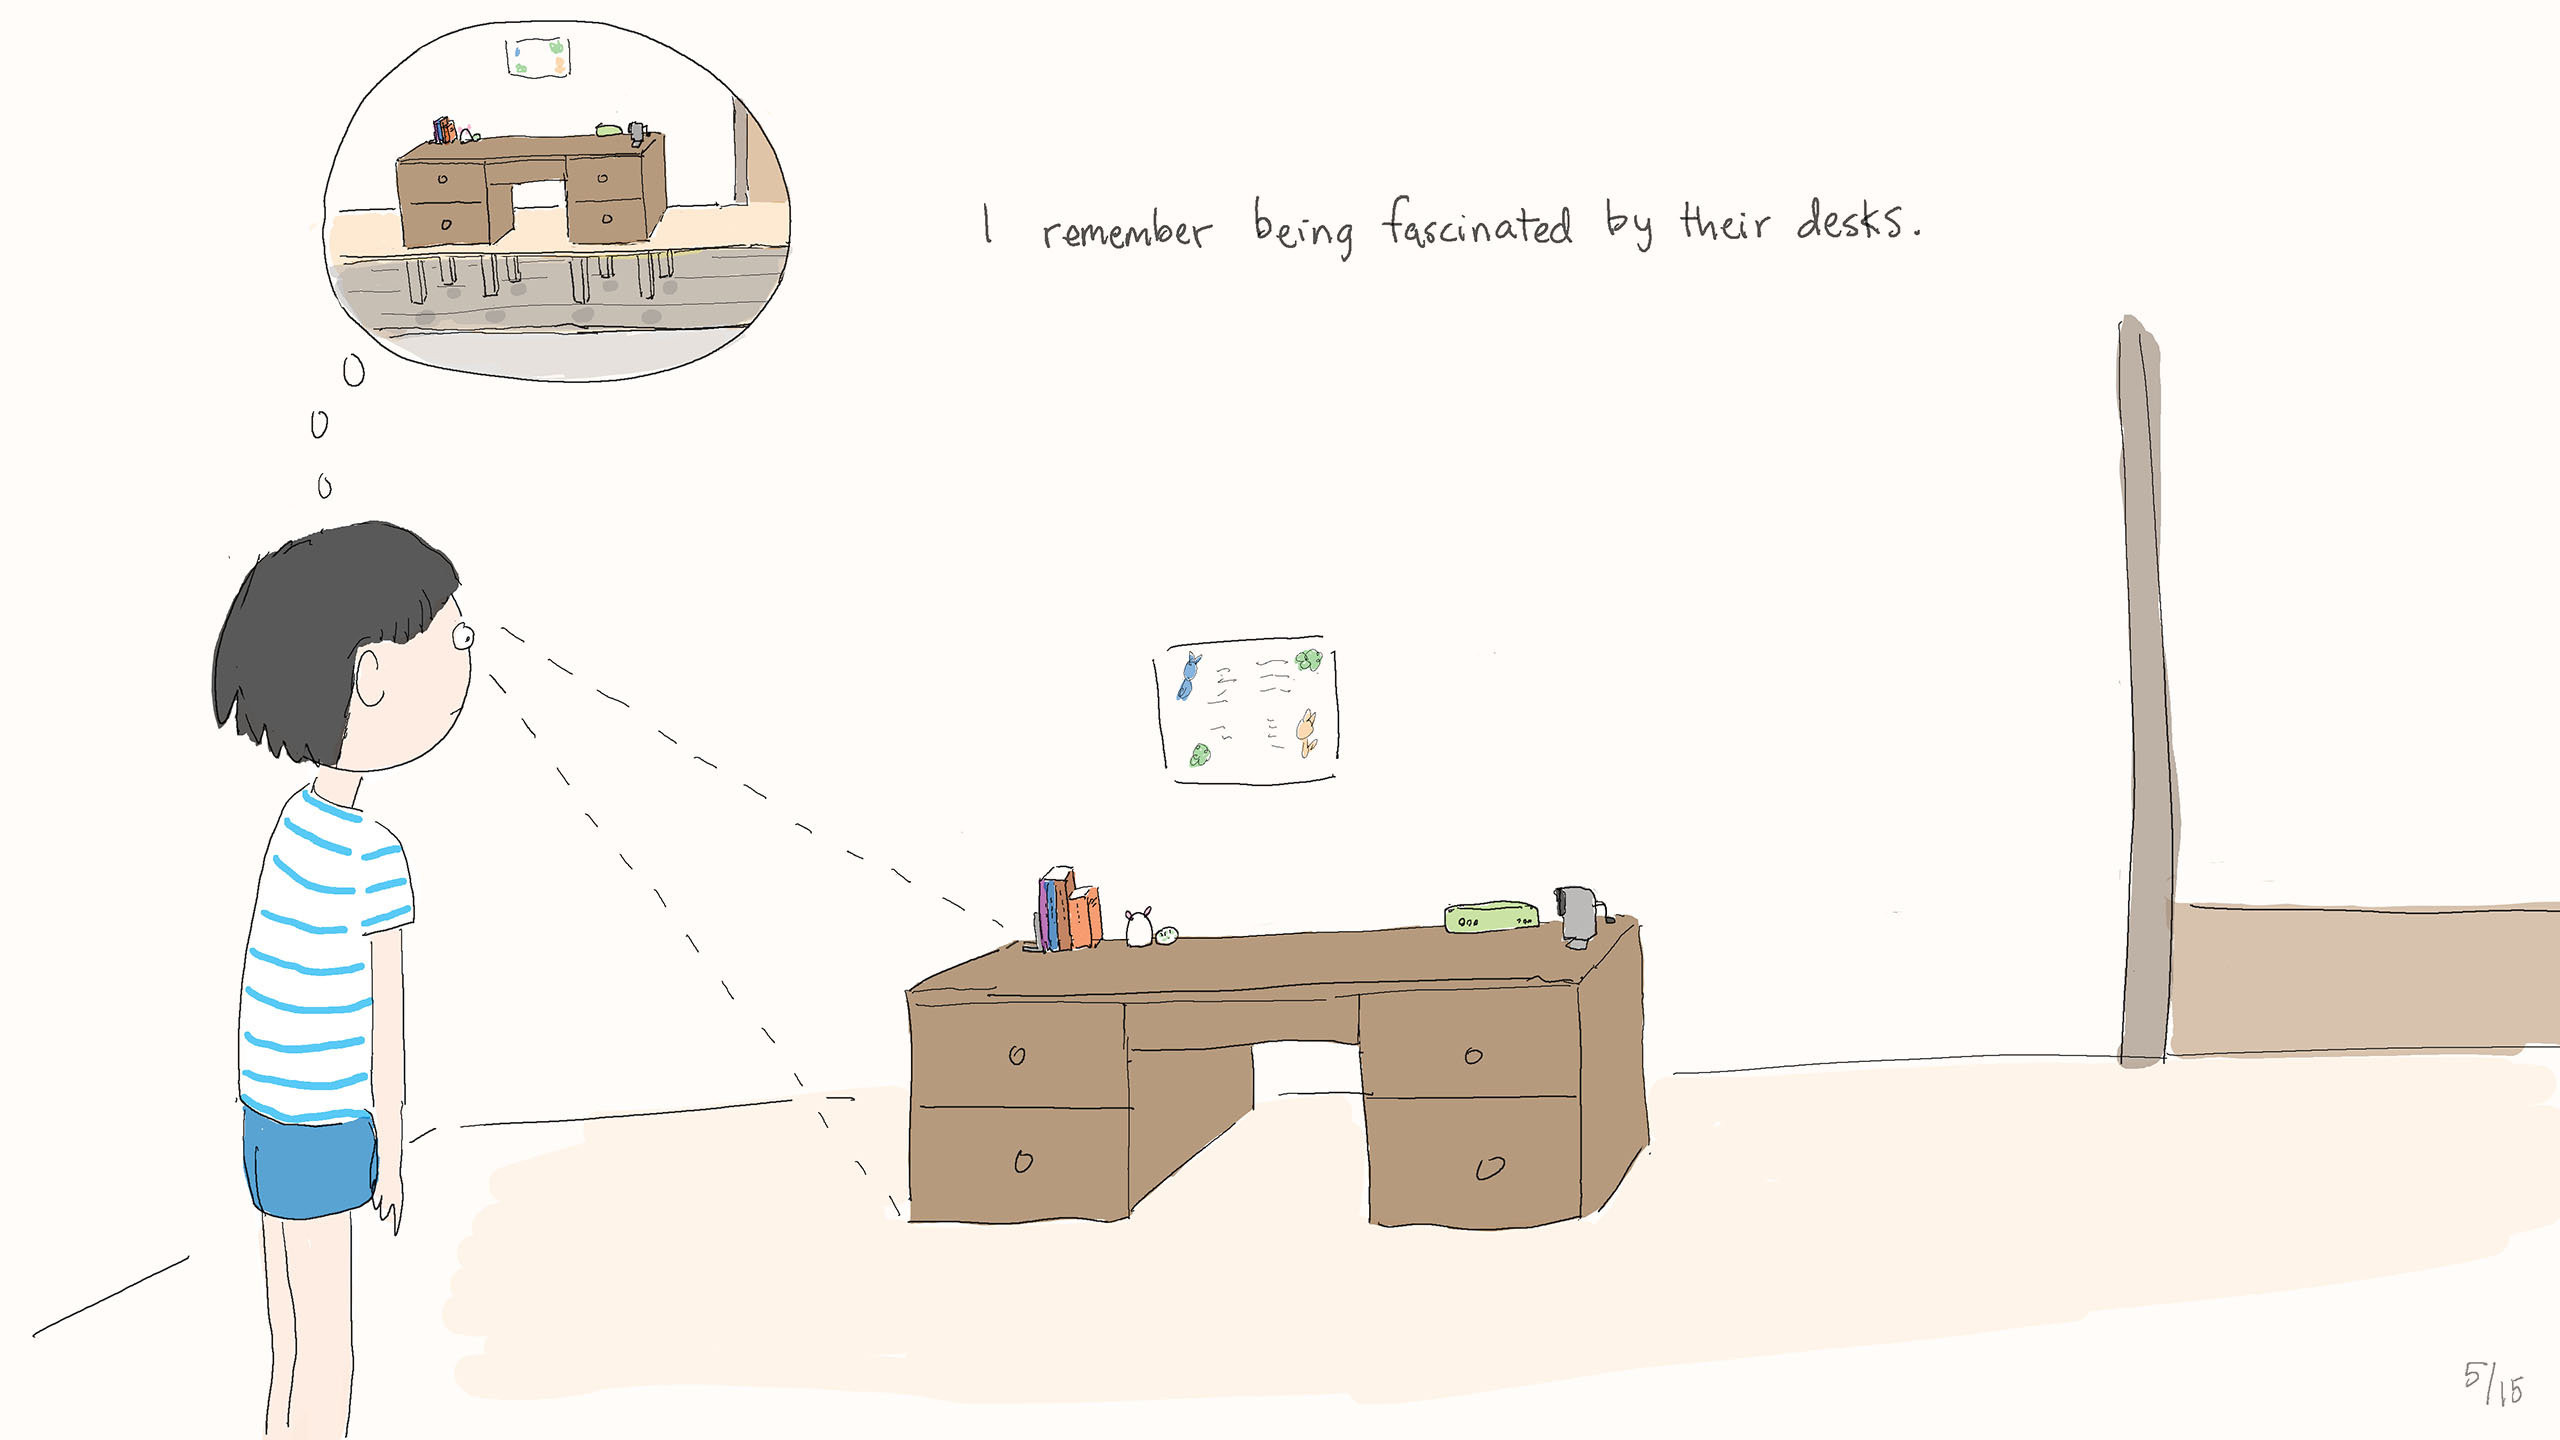 I remember being fascinated by their desks.
5/15